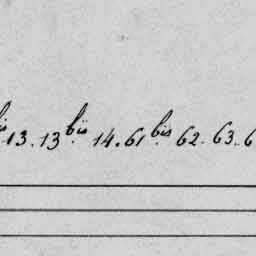 bis 13. 13 bis. 14. 61 bis. 62. 63. 6